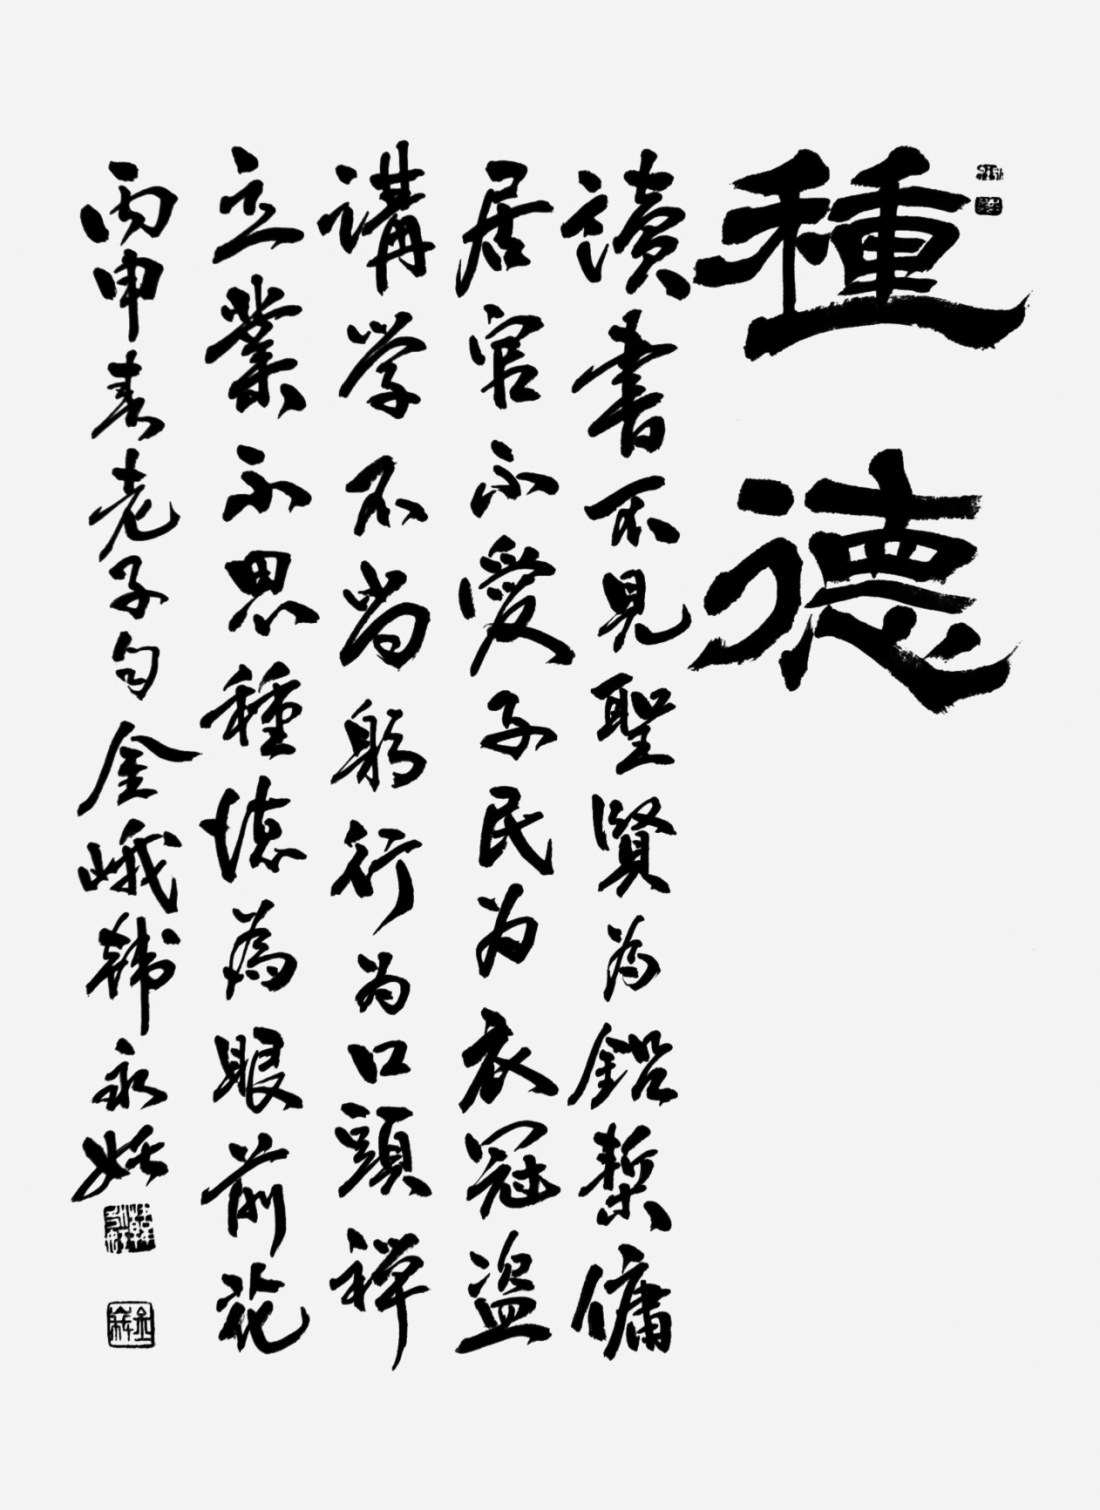 種德
讀書不見聖賢為鉛椠傭
居官不愛子民为衣冠盗
講学不尚躬行为口頭禅
立業不思種德為眼前花
丙申春老子句金峨韩永